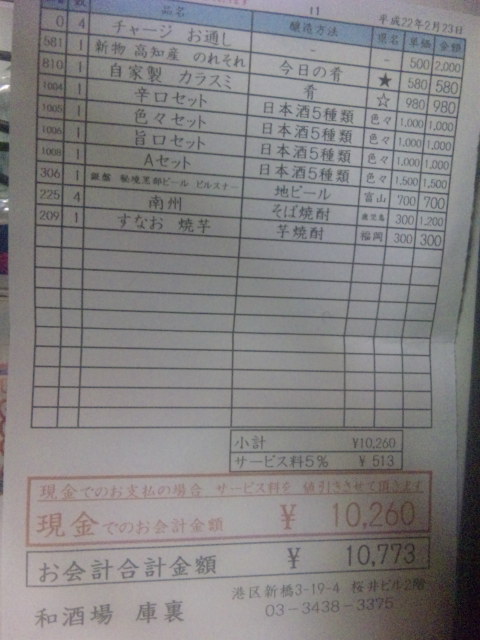 11 平成22年2月23日
数 品名 醸造方法 県名 単価 金額
0 4 チャージ お通し - - 500 2,000
581 1 新物 高知産 のれそれ 今日の肴 ★ 580 580
810 1 自家製 カラスミ 肴 ☆ 980 980
1004 1 辛口セット 日本酒5種類 色々 1,000 1,000
1005 1 色々セット 日本酒5種類 色々 1,000 1,000
1006 1 旨口セット 日本酒5種類 色々 1,000 1,000
1 Aセット 日本酒5種類 色々 1,500 1,500
306 1 銀盤 秘境黒部ビール ピルスナー 地ビール 富山 700 700
225 4 南州 そば焼酎 鹿児島 300 1,200
209 1 すなお 焼芋 芋焼酎 福岡 300 300
小計 ¥10,260
サービス料5% ¥ 513
現金でのお支払の場合 サービス料を 値引きさせて頂きます
現金でのお会計金額 ¥ 10,260
お会計合計金額 ¥ 10,773
和酒場 庫裏 港区新橋3-19-4 桜井ビル2階
03-3438-3375